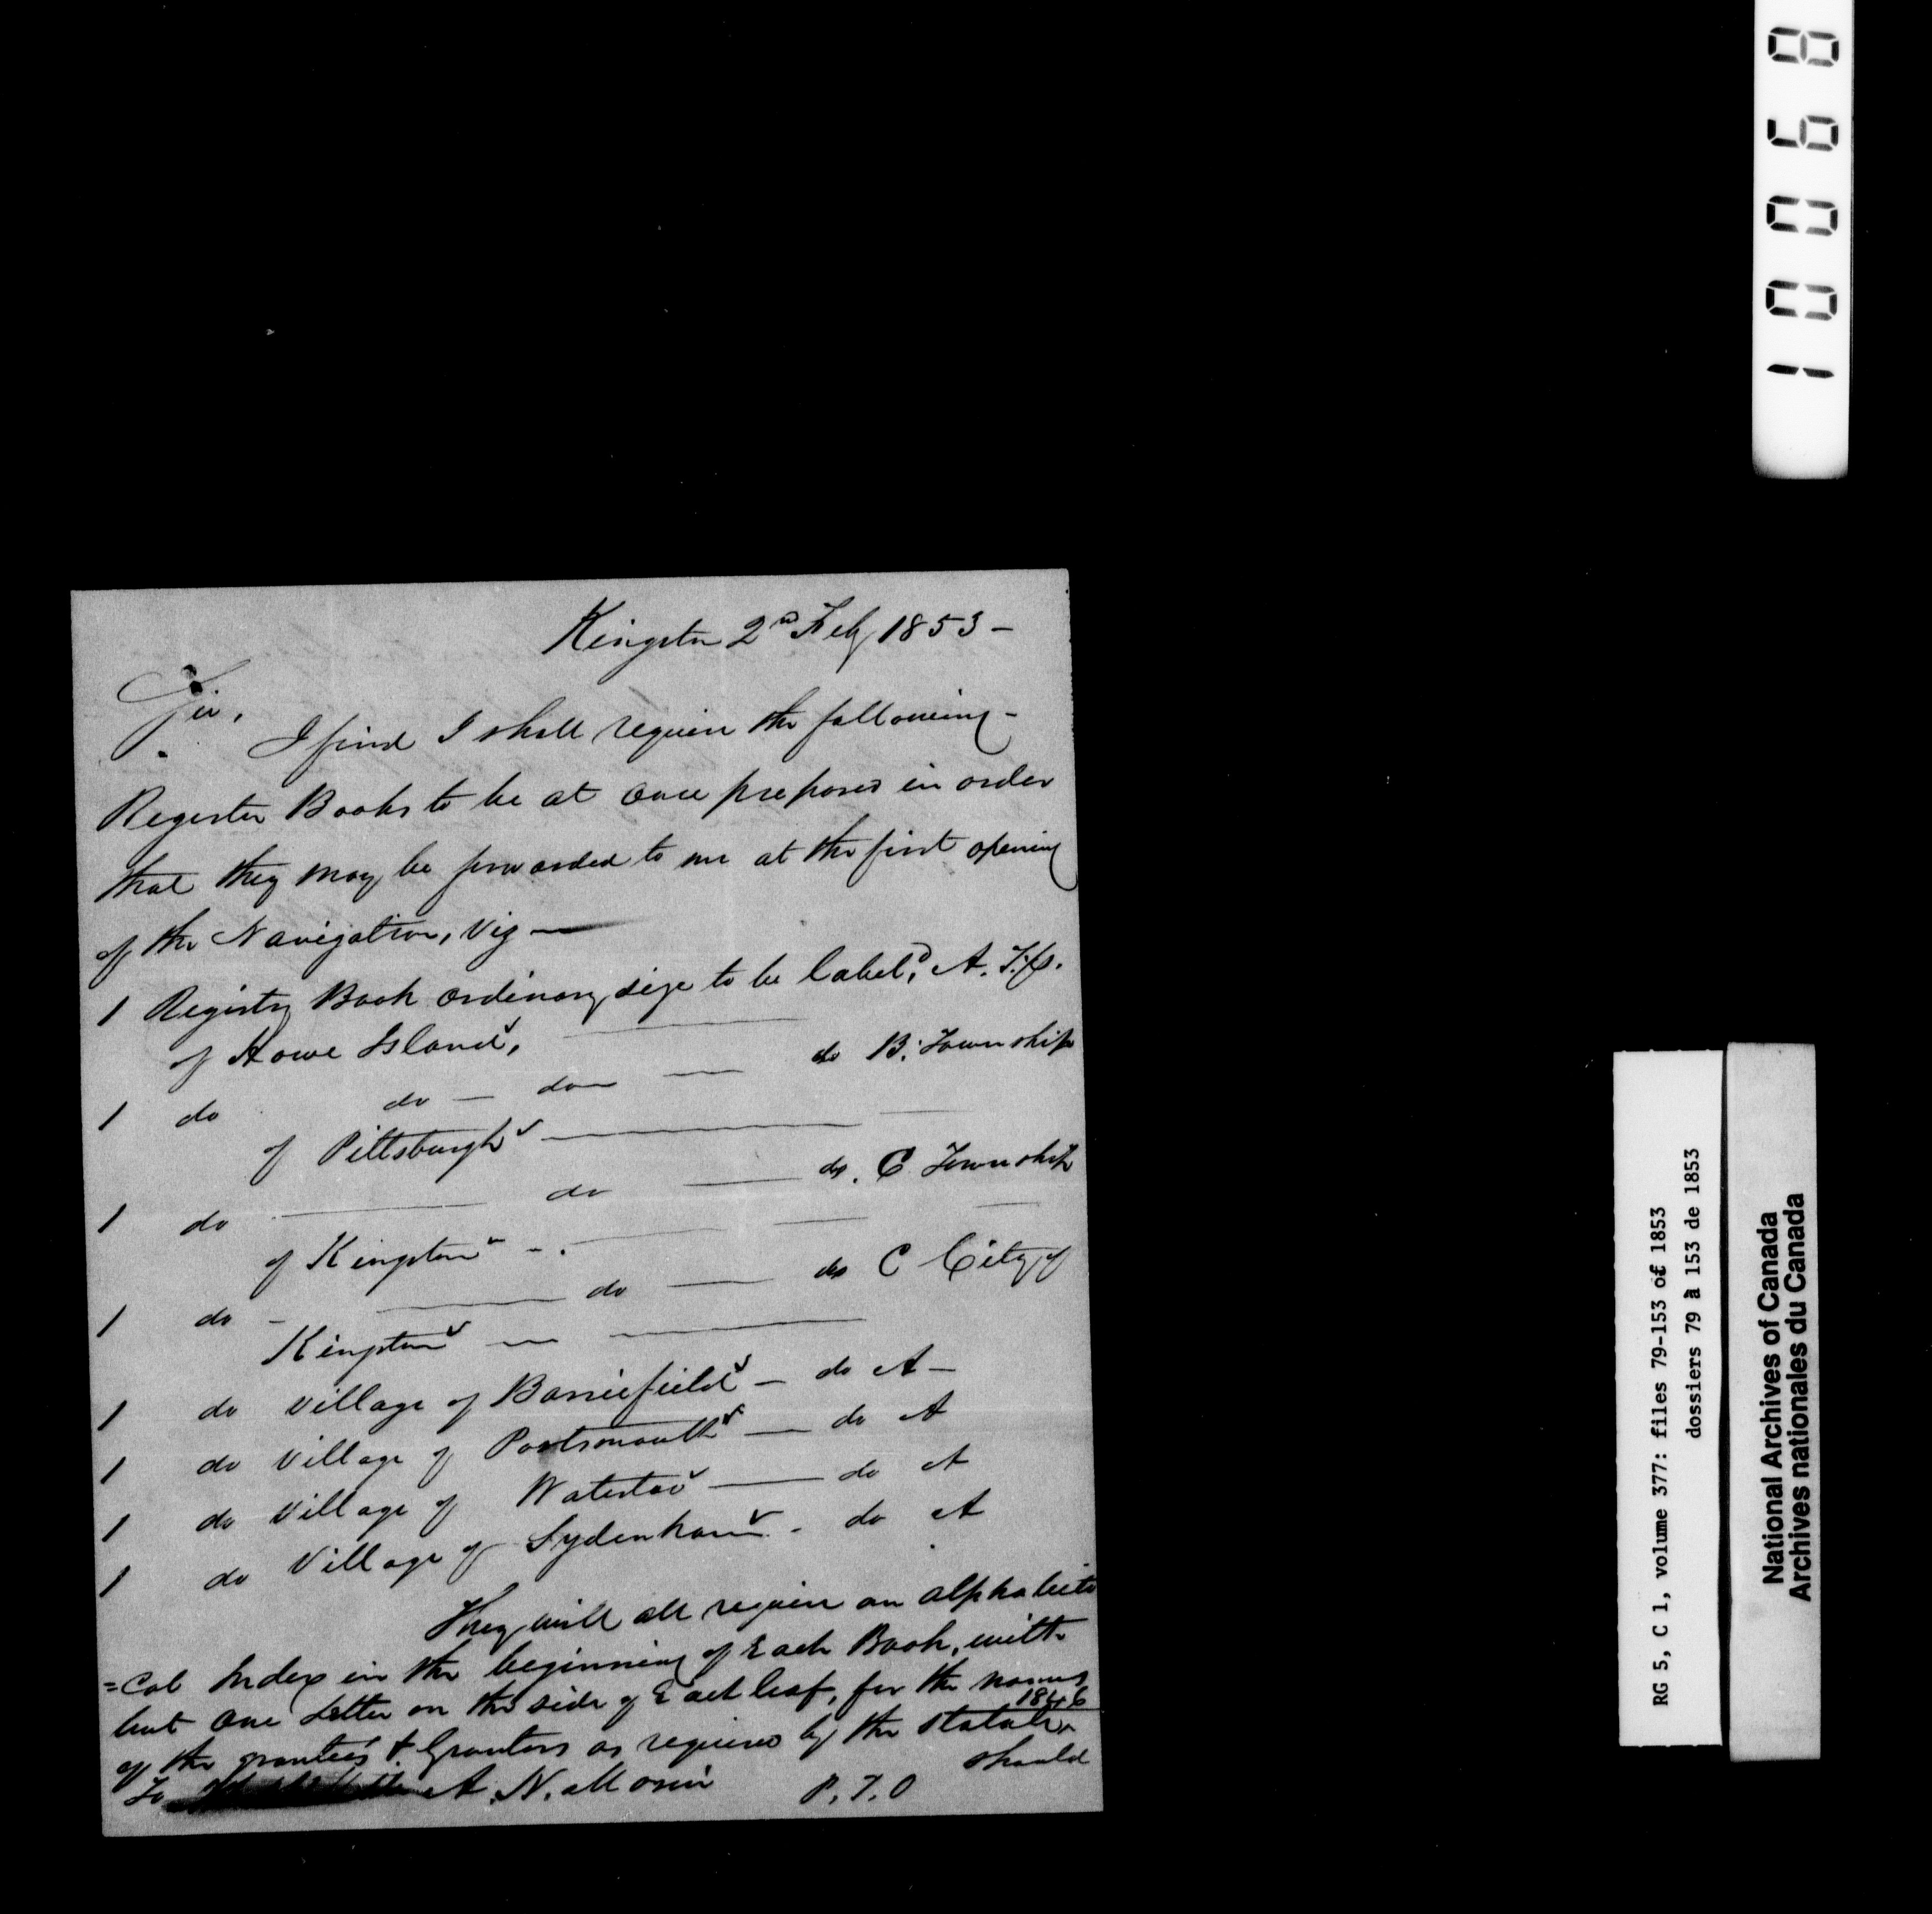 Kingston 2nd Feby 1853 -
Sir,
I find I shall require the following -
Register Books to be at once prepared in order
that they may be forwarded to me at the first opening
of the Navigation, Viz —
1 Registry Book ordinary size to be label'd A. T.p.
of Howe Island,
1 do do — do — do B. Township
of Pittsburgh —
1 do — do — do. C Township
of Kingston -.
1 do - — do — do C City of
Kingston —
1 do Village of Barriefield — do A —
1 do Village of Portsmouth — do A
1 do Village of Waterloo — do A
1 do Village of Sydenham - do A
They will all require an alphabeti
=cal Index in the beginning of Each Book, with
but One Letter on the side of Each leaf, for the names
1846
of the grantees & Grantors as required by the Statute
should
To A. N. Morin P. T. O
10068
RG 5, C 1, volume 377: files 79-153 of 1853
dossiers 79 à 153 de 1853
National Archives of Canada
Archives nationales du Canada